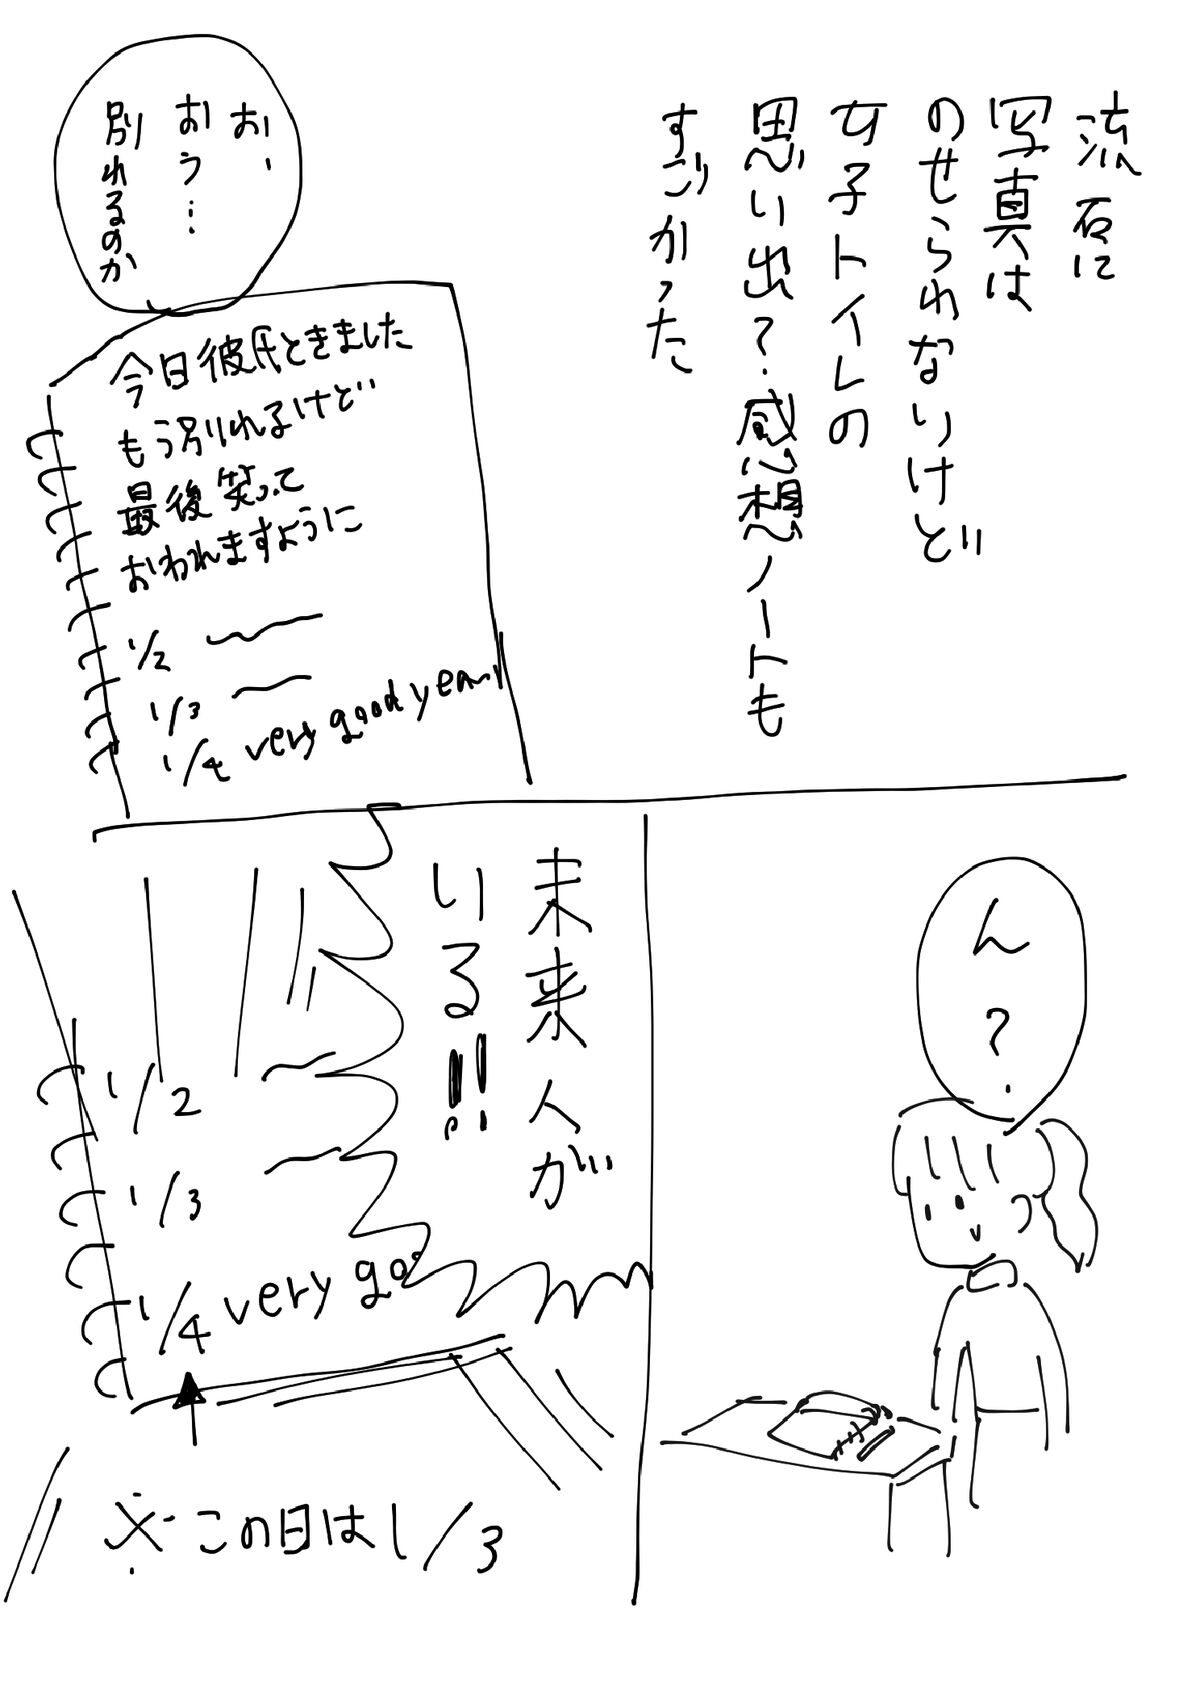 流石に
写真は
のせられないけど
女子トイレの
思い出?感想ノートも
すごかった
お、
おう…
別れるのか
今日彼氏ときました
もう別れるけど
最後笑って
おわれますように
1/2
1/3
1/4 very good year
ん?
未来人が
いる!!
1/2
1/3
1/4 very go
※この日は1/3